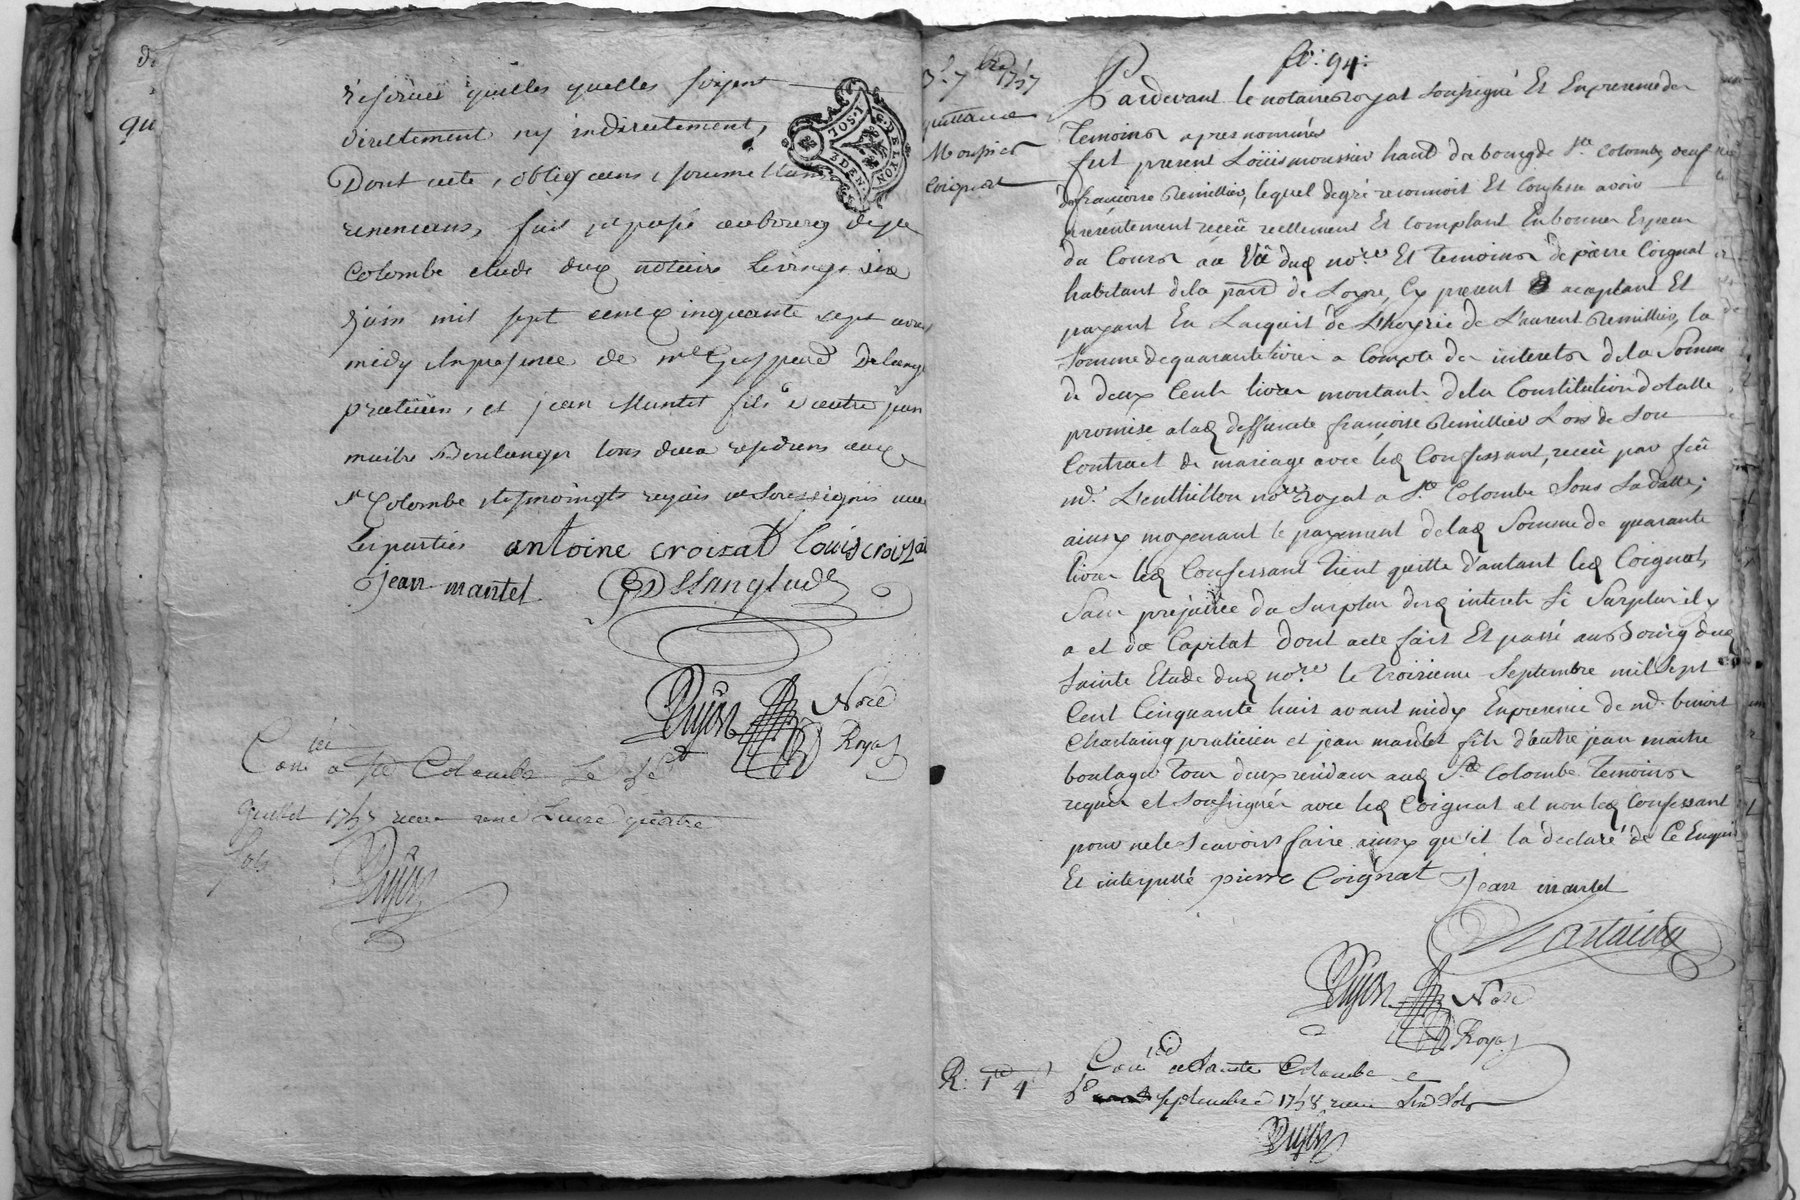 quelles quelles soyent
directement ny indirectement,
Dont acte, obligeans, soumettans
renonceans, fait et passé au bourg de Ste
Colombe etude dud notaire le vingt six
juin mil sept cent cinquante sept avant
midy en presence de me
praticien, et jean Mantel fils d'autre jean
maitre Boulanger tous deux residens aud
St Colombe temoingts requis et soussignés avec
Les parties antoine croizat louis croizat
jean mantel
Dujon Nore
Royal
Conlé a Ste Colombe Le
juillet 1757 receu une Livre quatre
sols
Dujon
I·SOL
3·DEN
G·DE LYON
fo: 94:
7bre 1757
quittance
Mousier
Coignat
Pardevant le notaire Royal soussigné Et En presence des
Temoins apres nommés
fut present Loüis moussier habt du bourg de Ste Colombe veuf
de françoise Remillier, lequel de gré reconnoit Et Confesse avoir
présentement receü reellement Et comptant En bonnes Especes
du Cours au Vû dud nore Et Temoins de pierre Coignat
habitant de la parr de Loyre, Cy present acceptant Et
payant En L'acquit de L'hoyrie de Laurent Remillier, la
Somme de quarante livres a Compte des interets de la Somme
de deux Cents livres montant de la Constitution dotalle
promise a lad deffuncte françoise Remillier Lors de Son
Contract de mariage avec led Confessant, receu par feü
me. L'enthillon nore Royal a Ste Colombe Sous Sa datte;
ainsy moyenant le payement de lad Somme de quarante
livres led Confessant Tient quitte d'autant led Coignat,
Sans prejudice du Surplus desd interets Si Surplus il y
a et du Capital dont acte fait Et passé au Bourg dud
Sainte Etude dud nore le Troisieme Septembre mil Sept
Cent Cinquante huit avant midy En presence de me. benoit
Chastaing praticien et jean mantel fils d'autre jean maitre
boulager Tous deux residans aud Ste Colombe Temoins
requis et Soussignés avec led Coignat et non led Confessant
pour ne le Scavoir faire ainsy qu'il la declaré de Ce Enquis
Et interpellé pierre Coignat jean mantel
Chastaing
Dujon Nore
Royal
R: 1 4s
Conlé a Sainte Colombe
Le septembre 1758 receu Six Sols
Dujon